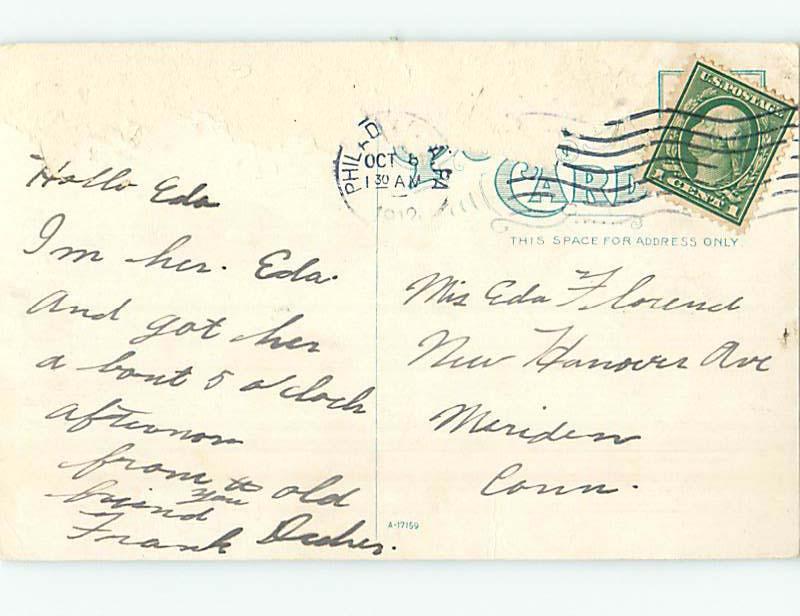 Hollo Eda
Im her. Eda.
And got her
a bout 5 o'cloch
afternon
from to old
you
friend
Frank
PHIL'A, PA
OCT 5
1 30 AM
1912
U.S. POSTAGE
1 CENT 1
CARD
THIS SPACE FOR ADDRESS ONLY.
Mis Eda Florend
New Hanover Ave
Meriden
Conn.
A-17159